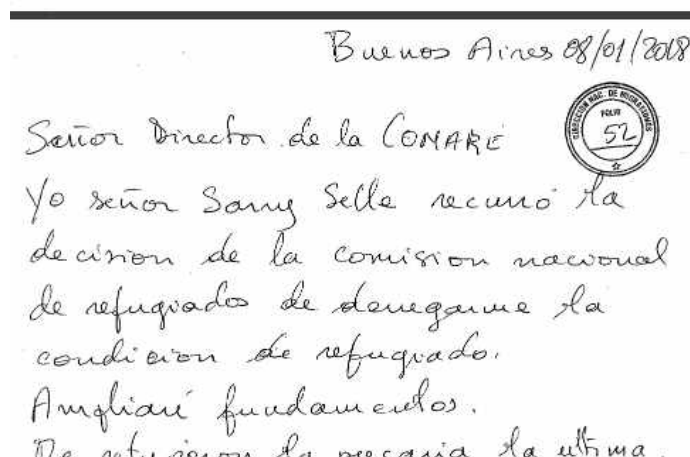 Buenos Aires 08/01/2018
DIRECCIÓN NAC. DE MIGRACIONES
FOLIO
52
Señor Director de la CONARE
Yo señor Sarry Selle recurro la
decision de la comision nacional
de refugiados de denegarme la
condicion de refugiado.
Ampliaré fundamentos.
la precaria la ultima